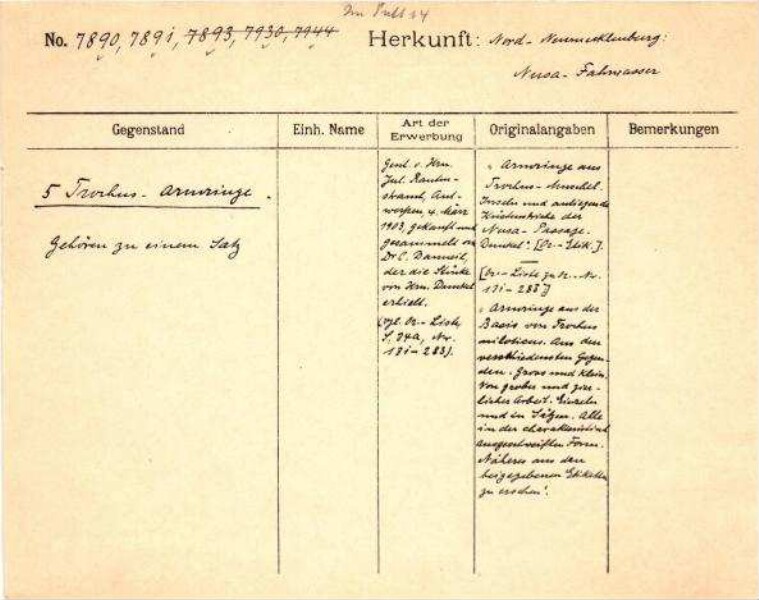 Im Pult 14
No. 7890, 7891, 7893, 7930, 7944 Herkunft: Nord-Neumecklenburg:
Nusa-Fahrwasser
Gegenstand
5 Trochus-Armringe.
Gehören zu einem Satz
Einh. Name
Art der
Erwerbung
Gesch. v. Hrn.
Jul. Rauten-
strauch, Ant-
werpen, 4. März
1903, gekauft und
gesammelt von
Dr C. Danneil,
der die Stücke
von Hrn. Dunckel
erhielt.
(vgl. Or.-Liste,
S. 24a, Nr.
181-283).
Originalangaben
„Armringe aus
Trochus-Muschel.
Inseln und anliegende
Küstenstriche der
Nusa-Passage.
Dunckel". [Or.-Etik.].
[Or.-Liste zu Or.-Nr.
181-283]
„Armringe aus der
Basis von Trochus
niloticus. Aus den
verschiedensten Gegen-
den. Gross und klein.
Von grober und zier-
licher Arbeit. Einzeln
und in Sätzen. Alle
in der charakteristisch
ausgeschweiften Form.
Näheres aus den
beigegebenen Etiketten
zu ersehen".
Bemerkungen